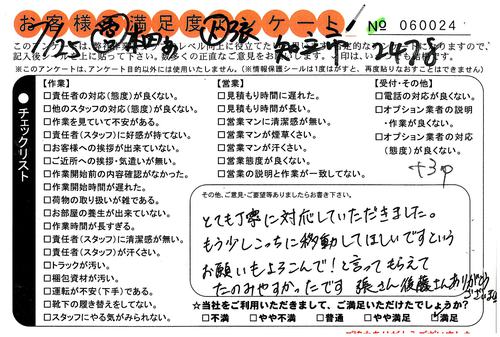 お客様満足度アンケート！
№ 060024
11/25
2478
このアンケートは、
記入後シール上に貼って下さい。
※このアンケートは、アンケート目的以外には使用いたしません。(※情報保護シールは1度はがすと、再度貼りなおすことはできません)
●チェックリスト
【作業】
□責任者の対応(態度)が良くない。
□他のスタッフの対応(態度)が良くない。
□作業を見ていて不安がある。
□責任者(スタッフ)に好感が持てない。
□お客様への挨拶が出来ていない。
□ご近所への挨拶・気遣いが無い。
□作業開始前の内容確認がなかった。
□作業開始時間が遅れた。
□荷物の取り扱いが雑である。
□お部屋の養生が出来ていない。
□作業時間が長すぎる。
□責任者(スタッフ)に清潔感が無い。
□責任者(スタッフ)が汗くさい。
□トラックが汚い。
□梱包資材が汚い。
□運転が不安(下手)である。
□靴下の履き替えをしてない。
□スタッフにやる気がみられない。
【営業】
□見積もり時間に遅れた。
□見積もり時間が長い。
□営業マンに清潔感が無い。
□営業マンが煙草くさい。
□営業マンが汗くさい。
□営業態度が良くない。
□営業の説明と作業が一致してない。
【受付・その他】
□電話の対応が良くない。
□オプション業者の説明
・作業が良くない。
□オプション業者の対応
(態度)が良くない。
+3p
その他、ご意見・ご要望等ありましたらお書き下さい。
とても丁寧に対応していただきました。
もう少しこっちに移動してほしいですという
お願いもよろこんで！と言ってもらえて
たのみやすかったです 張さん 後藤さんありがとう
ございました
☆当社をご利用いただきまして、ご満足いただけたでしょうか？
□不満 □やや不満 □普通 □やや満足 □満足